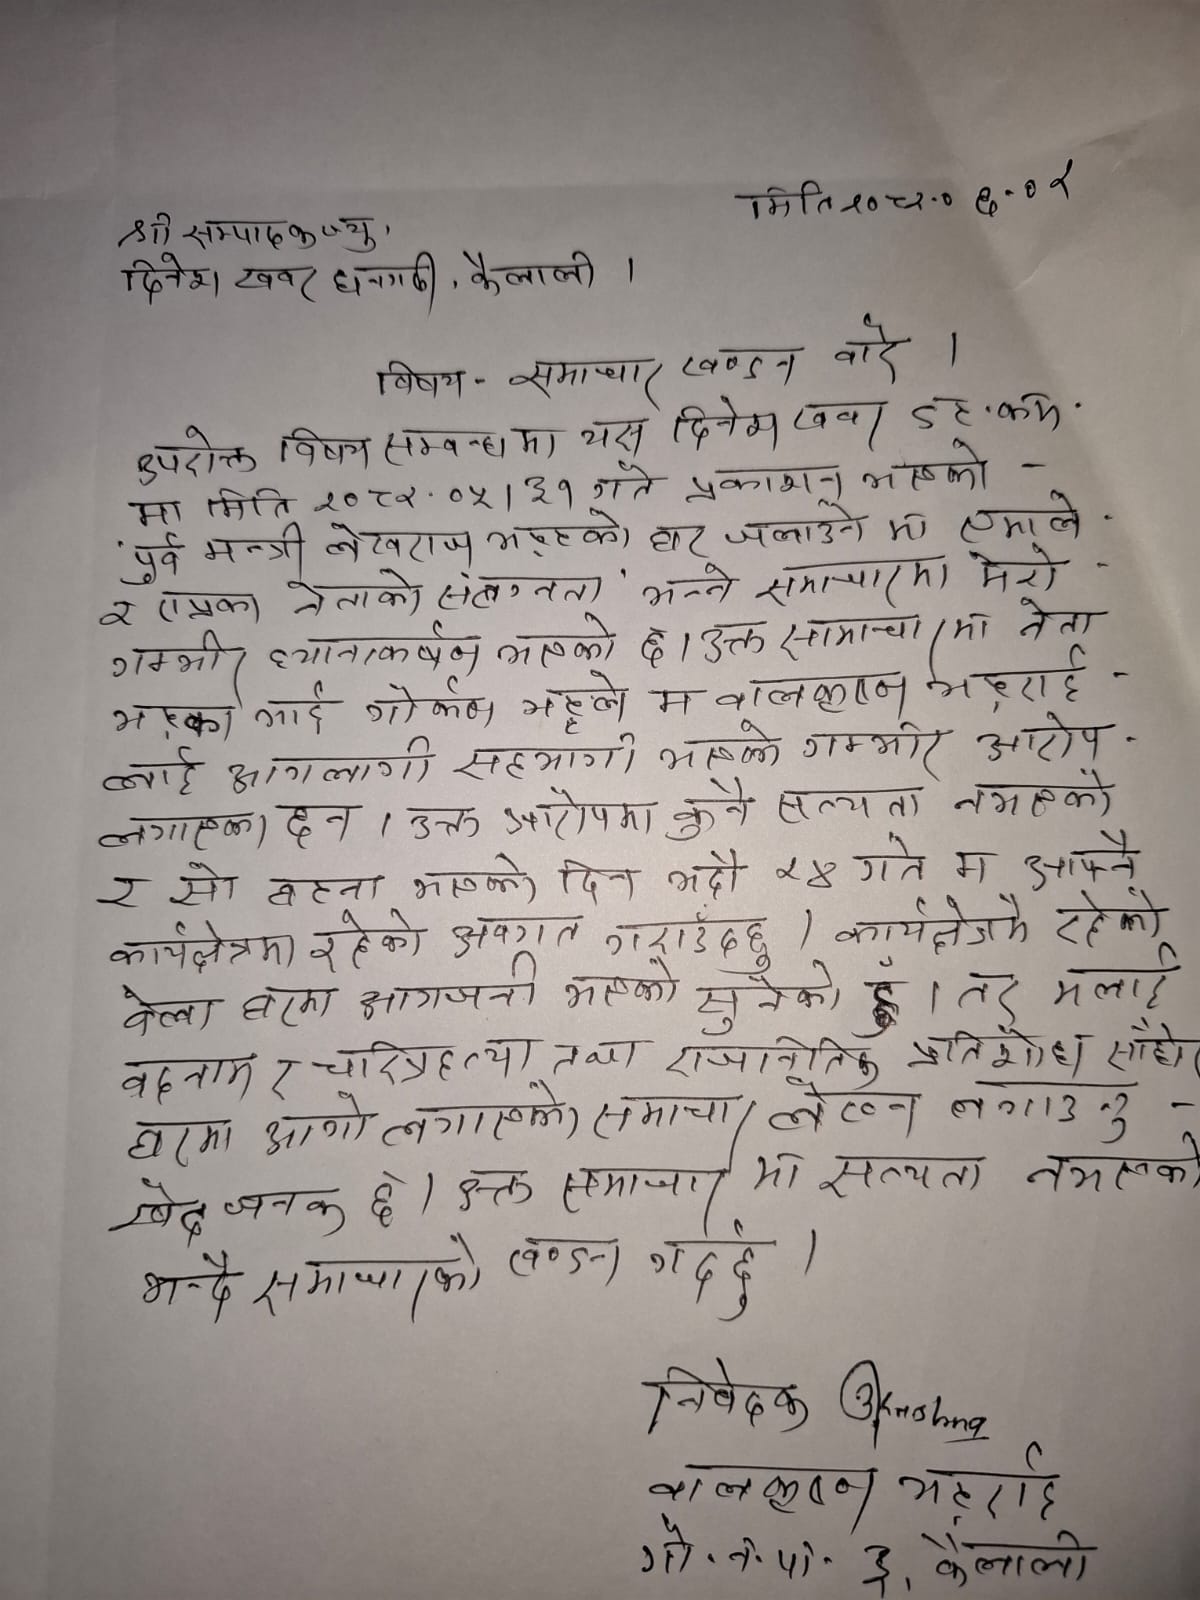 मिति २०८२.०६.०१
श्री सम्पादकज्यु,
दिनेश खबर धनगढी, कैलाली ।
विषय - समाचार खण्डन बारे ।
उपरोक्त विषय सम्बन्धमा यस दिनेश खबर डट.कम.
मा मिति २०८२.०५।३१ गते प्रकाशन भएको -
'पुर्व मन्त्री लेखराज भट्टको घर जलाउने मा एमाले -
र राप्रका नेताको संलग्नता' भन्ने समाचारमा मेरो -
गम्भीर ध्यानाकर्षण भएको छ । उक्त सामाचारमा नेता
भट्टका भाई गोकर्ण भट्टले म बालकृष्ण भट्टराई -
लाई आगलागी सहभागी भएको गम्भीर आरोप -
लगाएका छन । उक्त आरोपमा कुनै सत्यता नभएको
र सो घटना भएको दिन भदौ २४ गते म आफ्नै
कार्यक्षेत्रमा रहेको अवगत गराउँदछु । कार्यक्षेत्रमै रहेको
वेला घरमा आगजनी भएको सुनेको हुँ । तर मलाई
बदनाम र चारित्रहत्या तथा राजानीतिक प्रतिशोध साँधेर
घरमा आगो लगाएको समाचार लेख्न लगाउनु -
खेद जनक छ । उक्त समाचारमा सत्यता नभएको
भन्दै समाचारको खण्डन गर्दछु ।
निवेदक
बालकृष्ण भट्टराई
गो.न.पा. ३, कैलाली